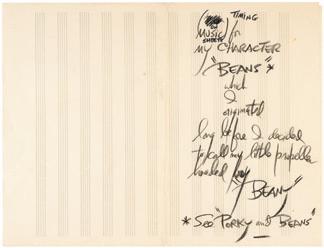 TIMING
ON
MUSIC
SHEETS
for
my CHARACTER
"BEANS"*
which
I
originated
long before I decided
to call my little propeller
headed boy
"BEANY"
* SEE "PORKY and BEANS"